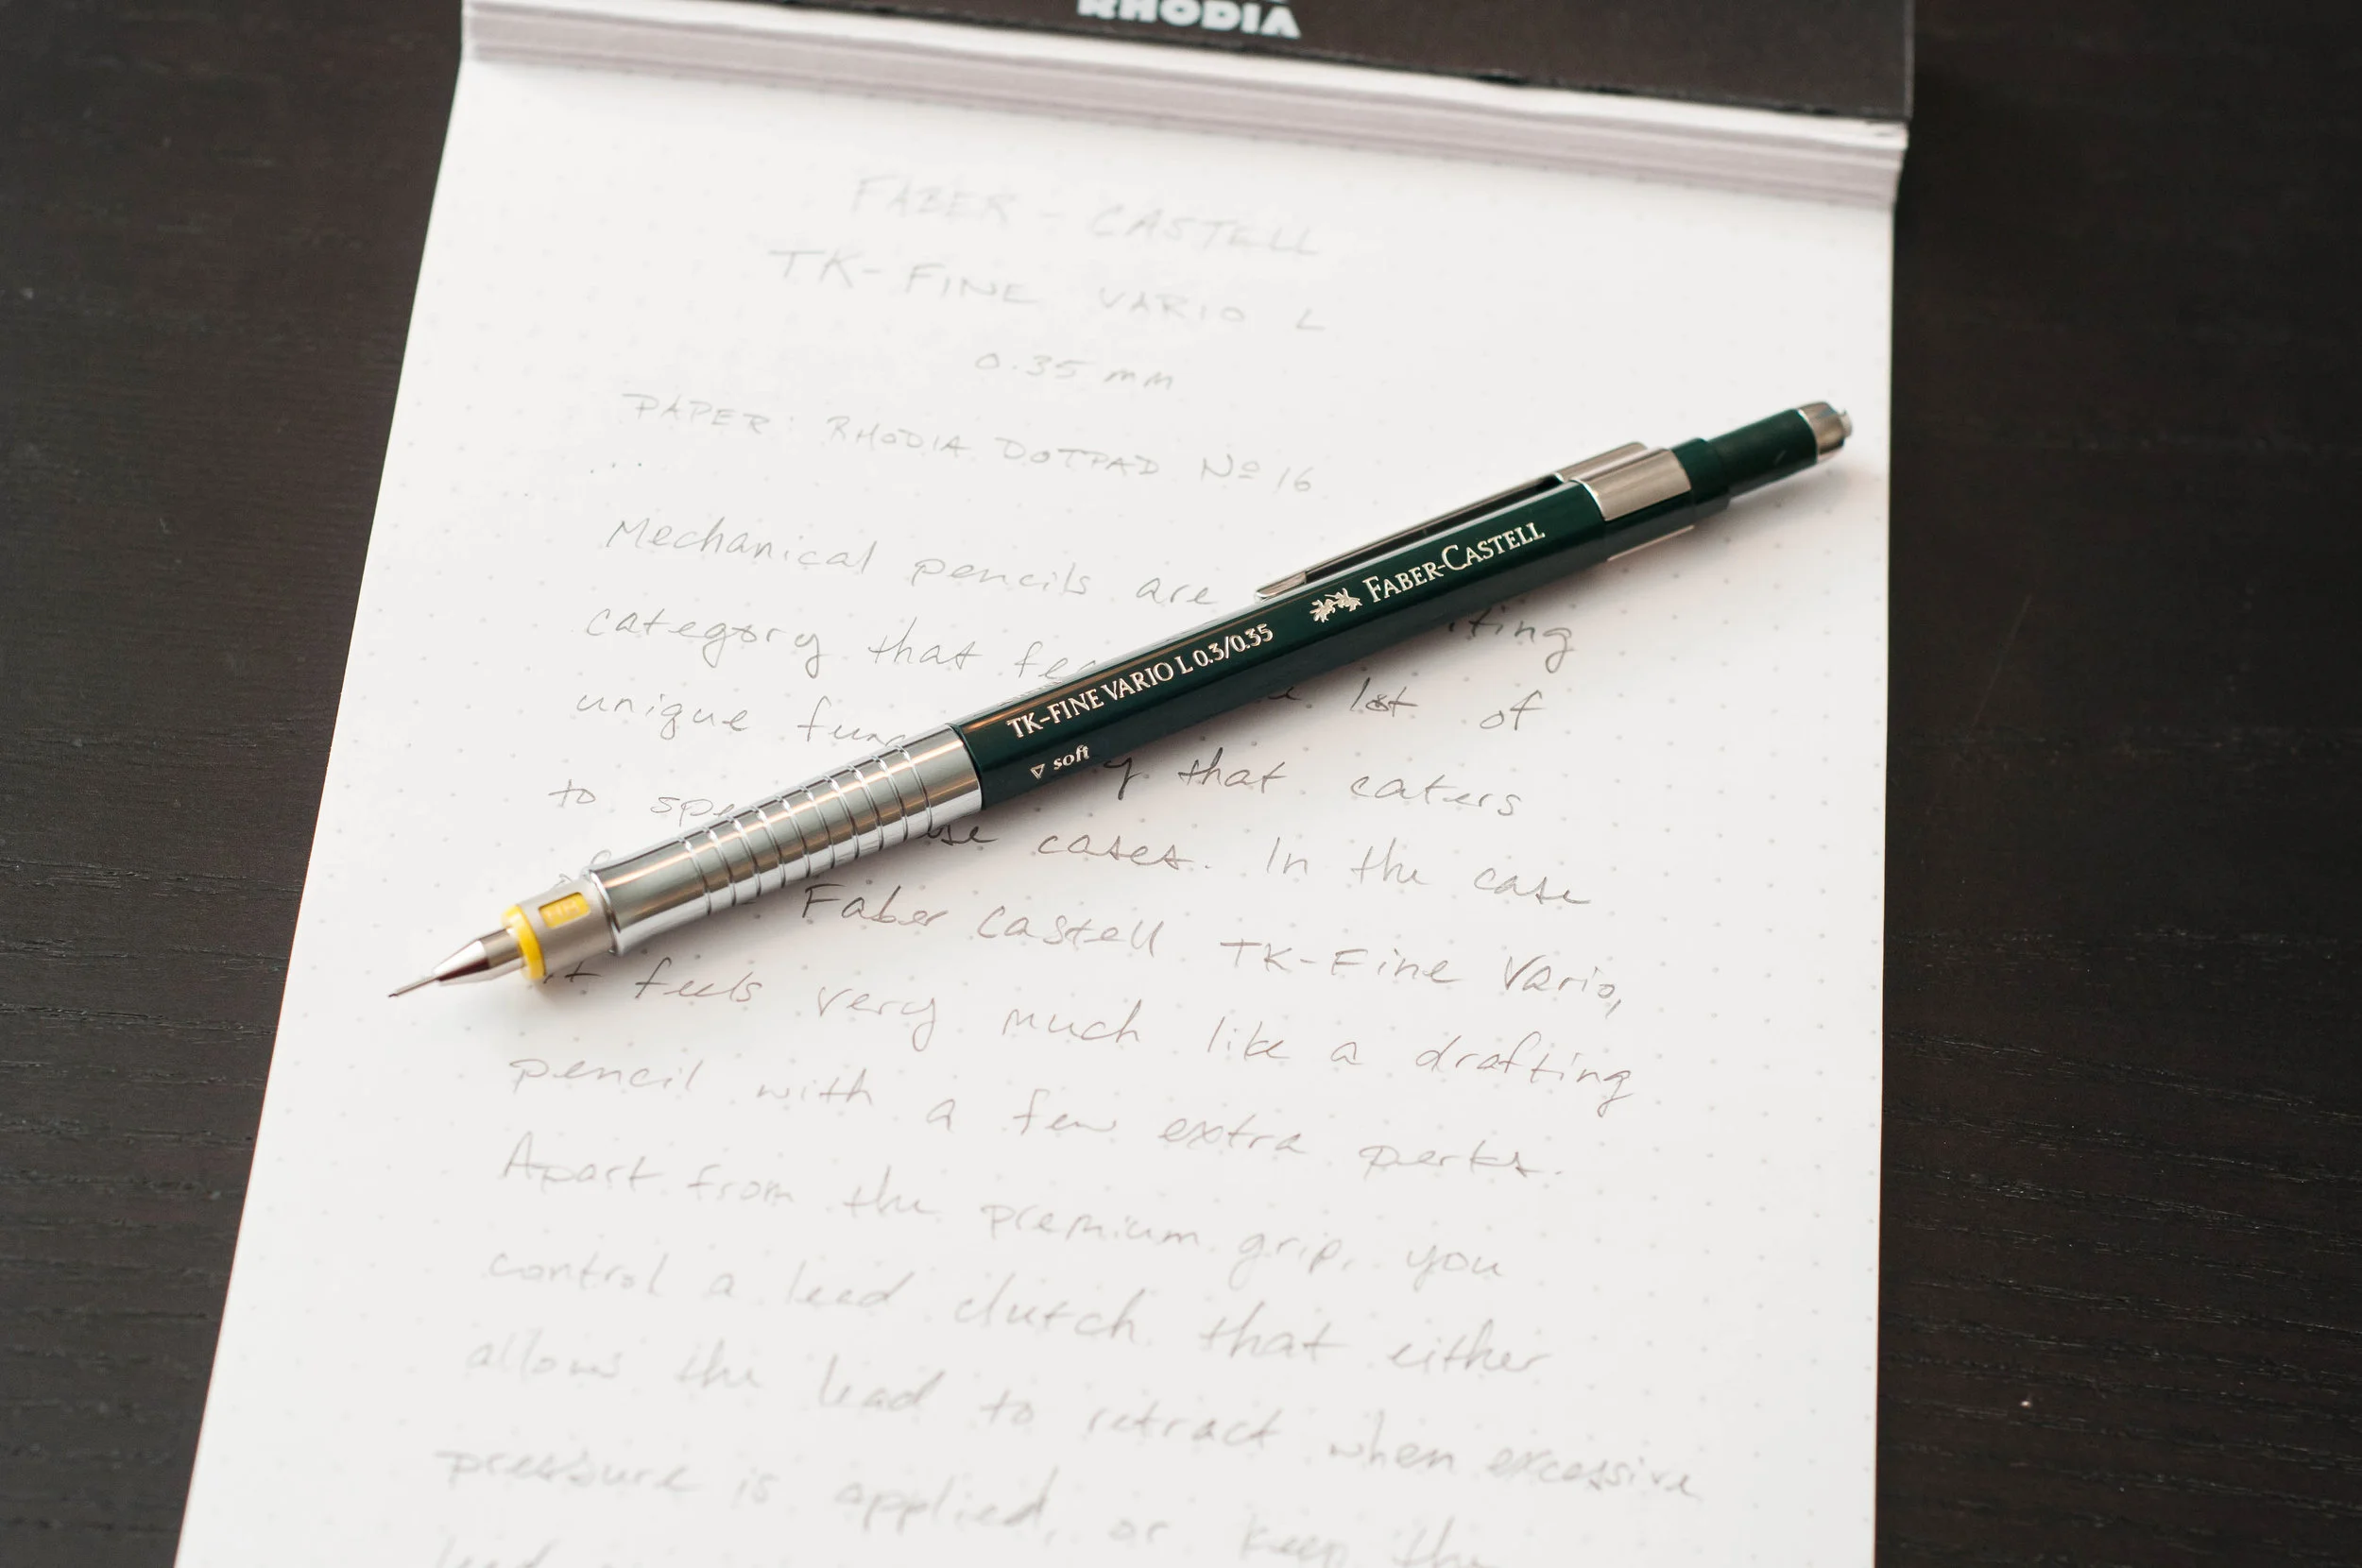 RHODIA
FABER - CASTELL
TK-FINE VARIO L
0.35 mm
PAPER: RHODIA DOTPAD Nº 16
...
Mechanical pencils are
category that
unique
lot of
to
that caters
cases. In the case
Faber Castell TK-Fine Vario,
it feels very much like a drafting
pencil with a few extra perks.
Apart from the premium grip, you
control a lead clutch that either
allows the lead to retract when excessive
pressure is applied, or keep the
lead
FABER-CASTELL
TK-FINE VARIO L 0.3/0.35
▽ soft